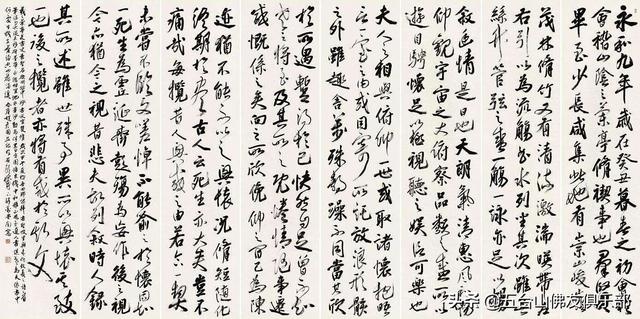 永和九年歲在癸丑暮春之初會于
會稽山陰之蘭亭脩禊事也群賢
畢至少長咸集此地有崇山峻領
茂林脩竹又有清流激湍映帶左
右引以為流觴曲水列坐其次雖無
絲竹管弦之盛一觴一詠亦足以暢
敘幽情是日也天朗氣清惠風和暢
仰觀宇宙之大俯察品類之盛所以
遊目騁懷足以極視聽之娛信可樂也
夫人之相與俯仰一世或取諸懷抱悟
言一室之內或因寄所託放浪形骸
之外雖趣舍萬殊靜躁不同當其欣
於所遇暫得於己快然自足曾不知
老之將至及其所之既惓情隨事遷
感慨係之矣向之所欣俛仰之間以為陳
迹猶不能不以之興懷況脩短隨化
終期於盡古人云死生亦大矣豈不
痛哉每攬昔人興感之由若合一契
未嘗不臨文嗟悼不能喻之於懷固知
一死生為虛誕齊彭殤為妄作後之視
今亦猶今之視昔悲夫故列敘時人錄
其所述雖世殊事異所以興懷其致
一也後之攬者亦將有感於斯文
头条 @五台山佛友俱乐部